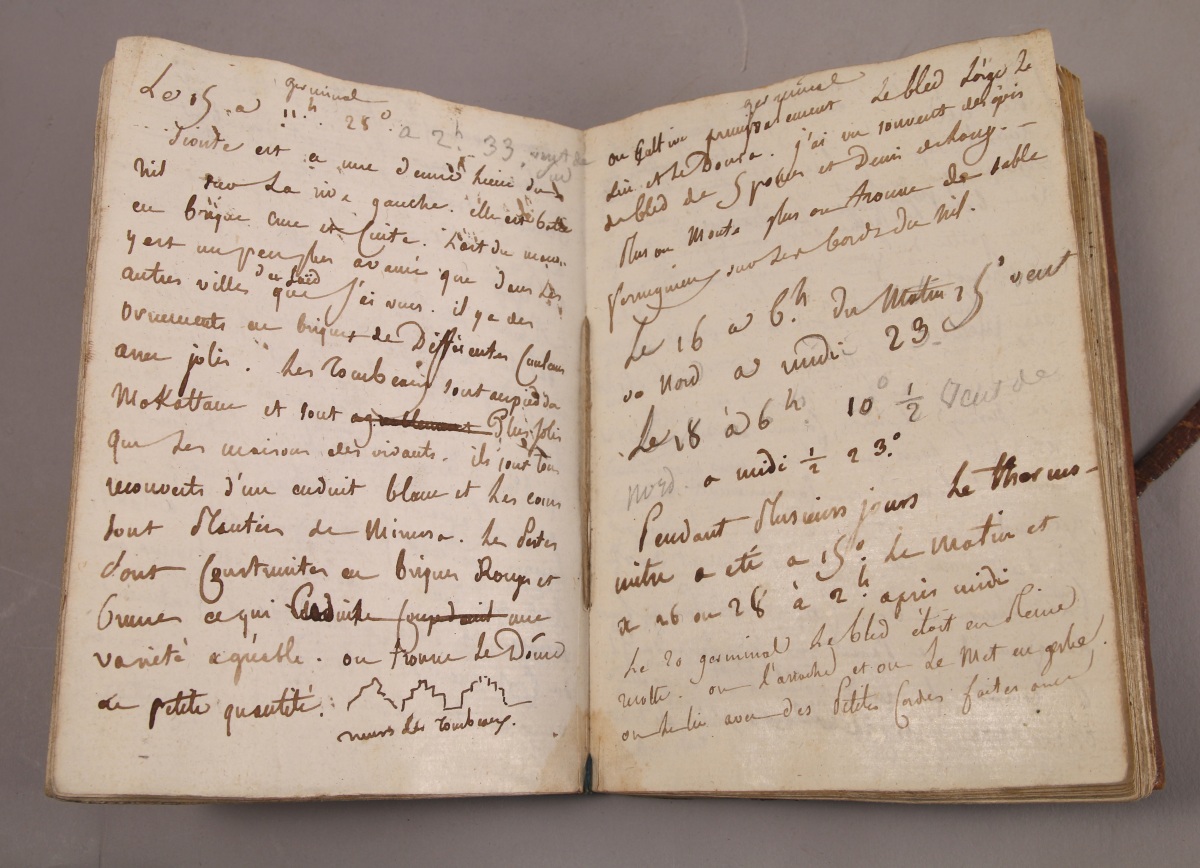 Le 15 a 11.h 28° a 2h. 33. vent de
germinal
Sioute est a une demie heure du
nil sur La rive gauche. elle est batie
en brique crue et Cuite. L'art du
y est un peu plus avancé que dans Les
autres villes du Saïd que j'ai vues. il y a des
ornements en briques de Différentes Couleurs
assez jolis. Les Tombeaux sont au pied du
Mokattam et sont agreablement Plus jolis
que Les maisons des vivants. ils sont tous
recouverts d'un enduit blanc et Les cours
sont Plantées de Mimosa. Les Portes
sont Construites en briques Rouges et
brunes ce qui une
varieté agréable. on trouve Le
en petite quantité.
murs des Tombeaux.
germinal
on Cultive principalement Le bled L'orge Le
Lin et Le Doura. j'ai vu souvent des épis
de bled de 5 pouces et Demi de Long.
Plus on Monte plus on trouve de sable
sur Les bords du Nil.
Le 16 a 6.h du Matin 15° vent
nord a midi 23
Le 18 à 6h 10° 1/2 Vent de
nord. a midi 1/2 23.°
Pendant Plusieurs jours Le thermo-
mètre a eté a 15° Le matin et
a 26 ou 28 à 2.h après midi
Le 20 germinal Le bled étoit en Pleine
recolte. on l'arrache et on Le Met en gerbe.
on Le lie avec des Petites Cordes faites avec